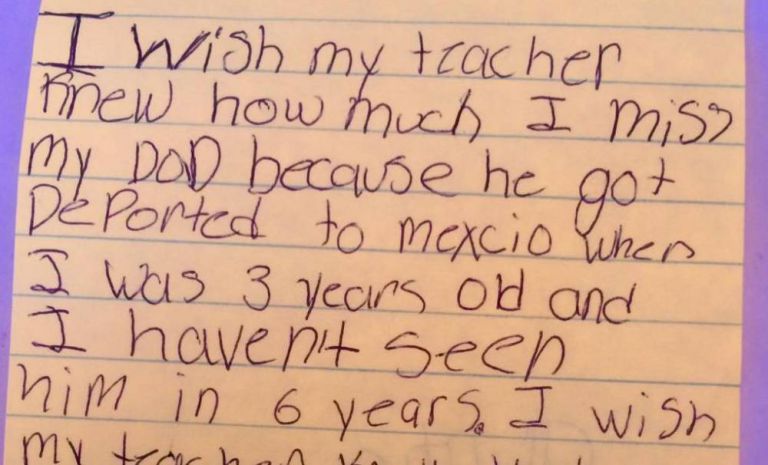 I wish my teacher
knew how much I miss
my DaD because he got
DePorted to mexcio when
I was 3 years old and
I haven't seen
him in 6 years. I wish
my teacher